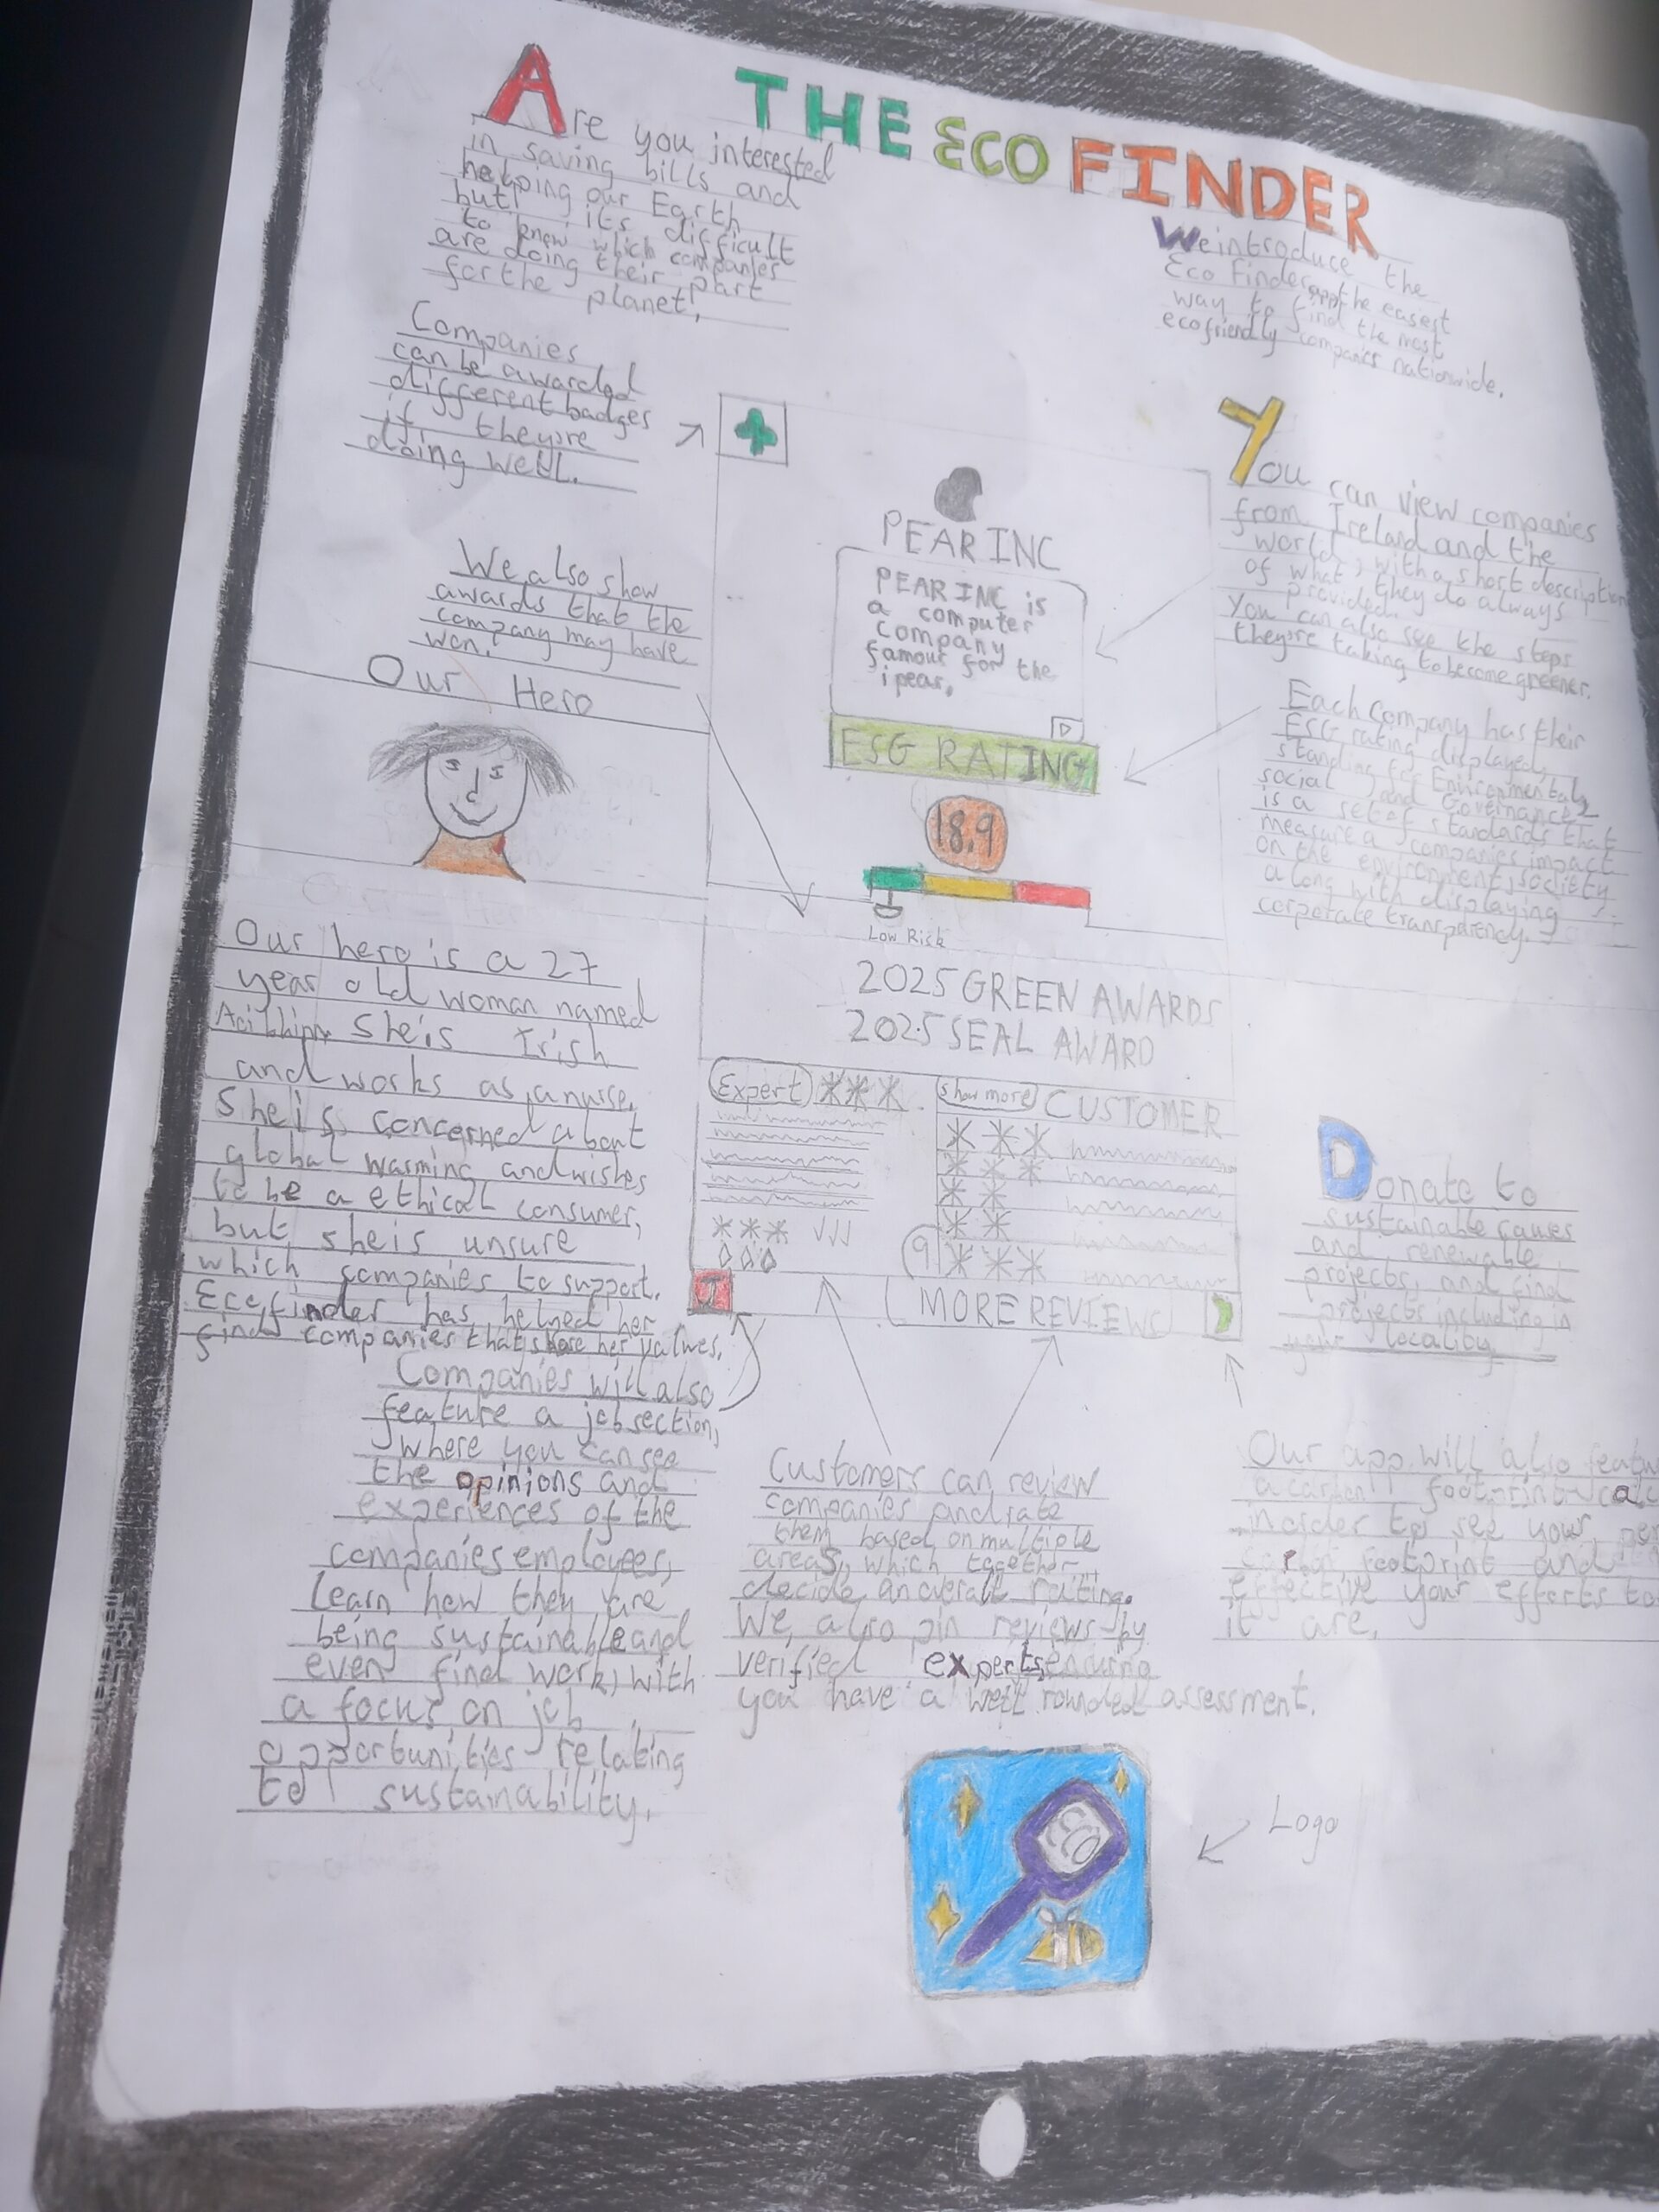 THE ECO FINDER
Are you interested
in saving bills and
helping our Earth
but its difficult
to know which companies
are doing their part
for the planet,
We introduce the
Eco Finder app the easiest
way to find the most
ecofriendly companies nationwide.
Companies
can be awarded
different badges
if they're
doing well.
We also show
awards that the
company may have
won.
PEAR INC
PEAR INC is
a computer
company
famous for the
ipear.
ESG RATING
18.9
Low Risk
You can view companies
from Ireland and the
world, with a short description
of what they do always
provided.
You can also see the steps
they're taking to become greener.
Each Company has their
ESG rating displayed,
standing for Environmental,
social and Governance
is a set of standards that
measure a companies impact
on the environment, society
along with displaying
corporate transparency.
Our Hero
Our hero is a 27
year old woman named
She is Irish
and works as a nurse.
She is concerned about
global warming and wishes
to be a ethical consumer,
but she is unsure
which companies to support.
Ecofinder has helped her
find companies that share her values.
2025 GREEN AWARDS
2025 SEAL AWARD
Expert
show more CUSTOMER
9
MORE REVIEWS
Donate to
sustainable causes
and renewable
projects, and find
projects including in
your locality
Companies will also
feature a job section,
where you can see
the opinions and
experiences of the
companies employees,
learn how they are
being sustainable and
even find work, with
a focus on job
opportunities relating
to sustainability.
Customers can review
companies and rate
them based on multiple
areas, which together
decide an overall rating.
We also pin reviews by
verified experts, ensuring
you have a well rounded assessment.
Our app will also featu
a carbon footprint calc
in order to see your per
carbon footprint and
effective your efforts to
it are.
ECO
Logo